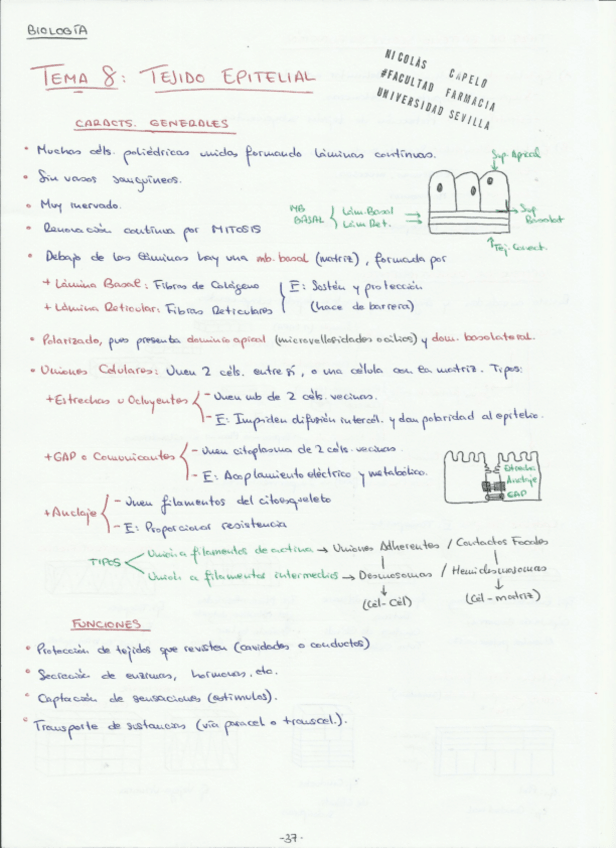 BIOLOGÍA
NICOLÁS CAPELO
#FACULTAD FARMACIA
UNIVERSIDAD SEVILLA
TEMA 8: TEJIDO EPITELIAL
CARACTS. GENERALES
• Muchas céls. poliédricas unidas formando láminas continuas.
• Sin vasos sanguíneos.
• Muy inervado.
• Renovación continua por MITOSIS
Sup. Apical
MB BASAL
Lám. Basal
Lám. Ret.
Sup. Basolat
Tej. Conect.
• Debajo de las láminas hay una mb. basal (matriz), formada por
+ Lámina Basal: Fibras de Colágeno
+ Lámina Reticular: Fibras Reticulares
F: Sostén y protección
(hace de barrera)
• Polarizado, pues presenta dominio apical (microvellosidades o cilios) y dom. basolateral.
• Uniones Celulares: Unen 2 céls. entre sí, o una célula con la matriz. Tipos:
+ Estrechas u Ocluyentes
- Unen mb de 2 céls. vecinas.
- F: Impiden difusión intercél. y dan polaridad al epitelio.
+ GAP o Comunicantes
- Unen citoplasma de 2 céls. vecinas.
- F: Acoplamiento eléctrico y metabólico.
Estrecha
Anclaje
GAP
+ Anclaje
- Unen filamentos del citoesqueleto
- F: Proporcionar resistencia
TIPOS
Unión a filamentos de actina → Uniones Adherentes / Contactos Focales
Unión a filamentos intermedios → Desmosomas / Hemidesmosomas
(Cél-Cél) (Cél-matriz)
FUNCIONES
• Protección de tejidos que revisten (cavidades o conductos)
• Secreción de enzimas, hormonas, etc.
• Captación de sensaciones (estímulos).
• Transporte de sustancias (vía paracel o transcel.).
-37-